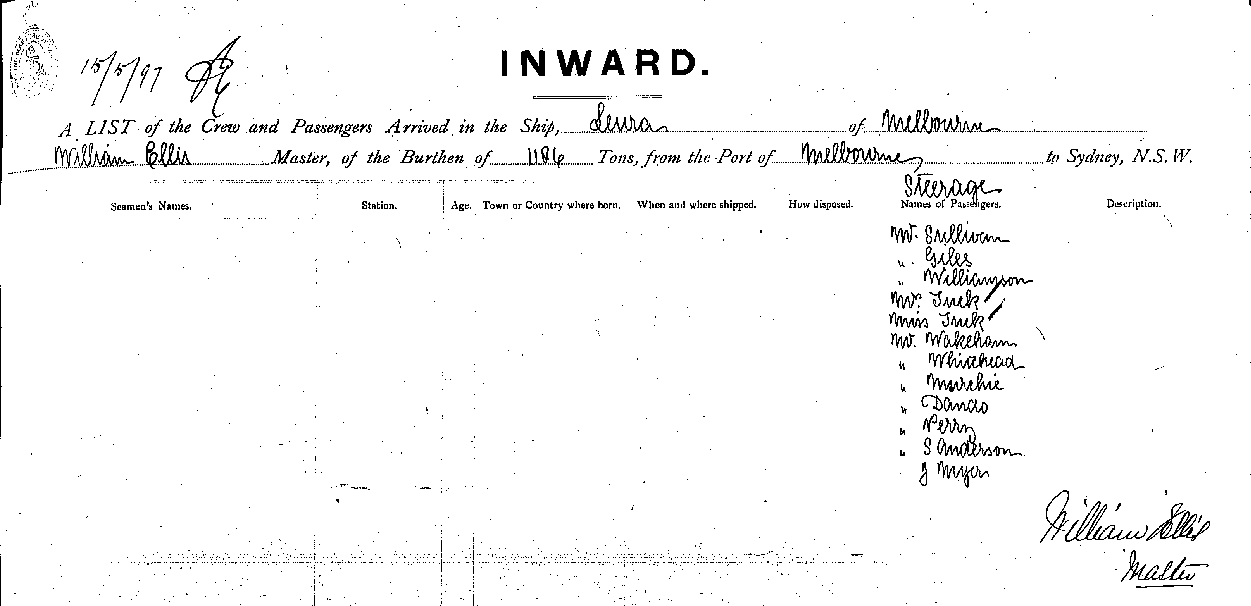 INWARD.
15/5/97
A LIST of the Crew and Passengers Arrived in the Ship, Leura of Melbourne
William Ellis Master, of the Burthen of 1186 Tons, from the Port of Melbourne to Sydney, N.S.W.
Steerage
Seamen's Names. Station. Age. Town or Country where born. When and where shipped. How disposed. Names of Passengers. Description.
Mr. Sullivan
" Giles
" Williamson
Mr. Tuck
Miss Tuck
Mr. Wakeham
" Whitehead
" Murchie
" Dando
" Perry
" S Anderson
J Myer
William Ellis
Master